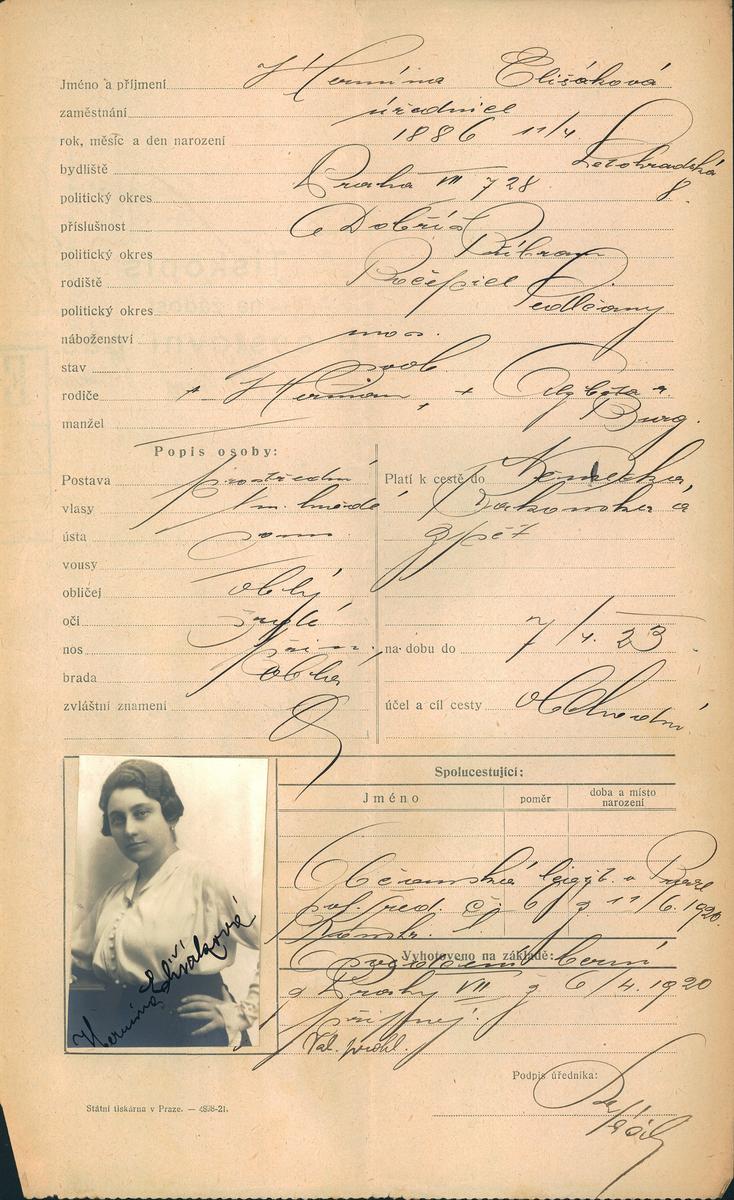 Jméno a příjmení Hermína Elišáková
zaměstnání úřednice
rok, měsíc a den narození 1886 11/4
bydliště Praha VII 728 Letohradská 8.
politický okres
příslušnost Dobříš
politický okres Příbram
rodiště Počepice
politický okres Sedlčany
náboženství mos.
stav svob
rodiče + Herman, + Alžběta r. Burg.
manžel
Popis osoby:
Postava prostřední
vlasy tm. hnědé
ústa
vousy
obličej oblý
oči šedé
nos přim.
brada oblá
zvláštní znamení
Platí k cestě do Německa,
Rakouska a
zpět
na dobu do 7/4. 23
účel a cíl cesty obchodní
Spolucestující:
Jméno poměr doba a místo narození
Občanská legit. v Praze
pol. řed. čj 6 z 11/6. 1920.
Vyhotoveno na základě:
berní
z Prahy VII z 6/4. 1920
Podpis úředníka:
Hermína Elišáková
Státní tiskárna v Praze. — 4898-21.